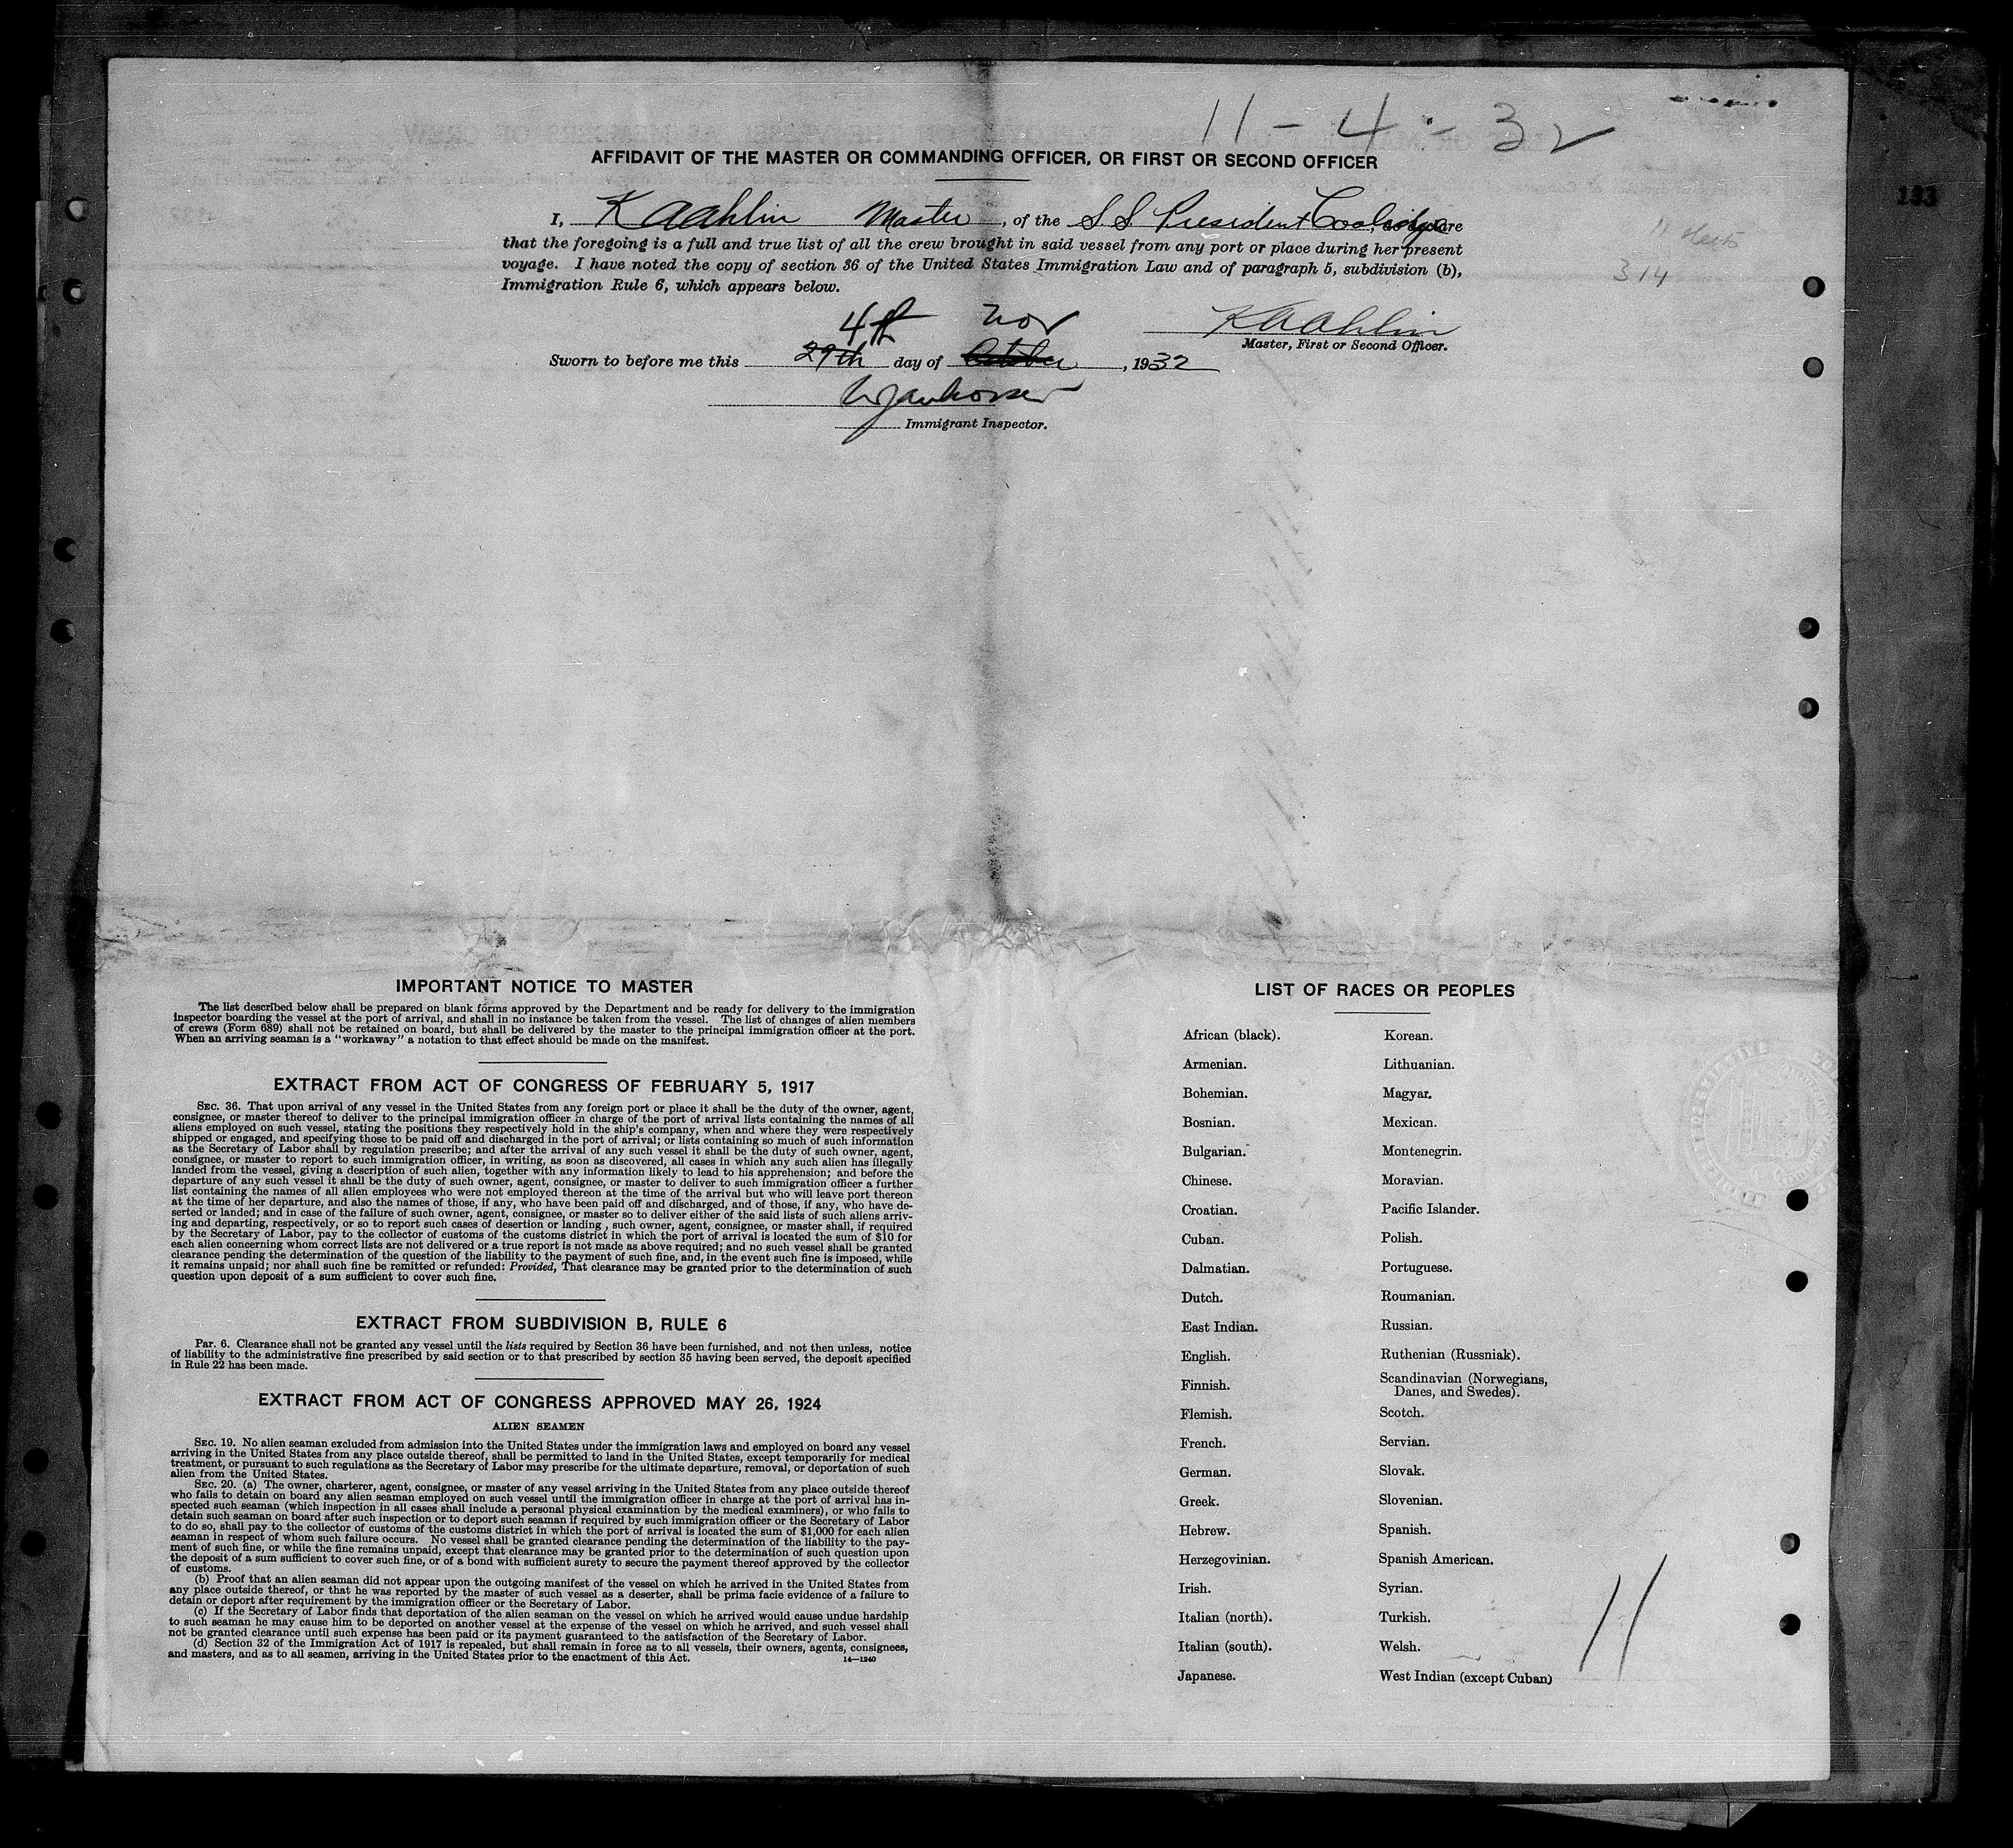 11-4-32
AFFIDAVIT OF THE MASTER OR COMMANDING OFFICER, OR FIRST OR SECOND OFFICER
133
I, K Aahlin Master, of the S.S. President Coolidge, declare
that the foregoing is a full and true list of all the crew brought in said vessel from any port or place during her present
voyage. I have noted the copy of section 36 of the United States Immigration Law and of paragraph 5, subdivision (b),
Immigration Rule 6, which appears below.
11
314
4th Nov
K A Ahlin
Master, First or Second Officer.
Sworn to before me this 29th day of October, 1932
Immigrant Inspector.
IMPORTANT NOTICE TO MASTER
The list described below shall be prepared on blank forms approved by the Department and be ready for delivery to the immigration
inspector boarding the vessel at the port of arrival, and shall in no instance be taken from the vessel. The list of changes of alien members
of crews (Form 689) shall not be retained on board, but shall be delivered by the master to the principal immigration officer at the port.
When an arriving seaman is a "workaway" a notation to that effect should be made on the manifest.
EXTRACT FROM ACT OF CONGRESS OF FEBRUARY 5, 1917
SEC. 36. That upon arrival of any vessel in the United States from any foreign port or place it shall be the duty of the owner, agent,
consignee, or master thereof to deliver to the principal immigration officer in charge of the port of arrival lists containing the names of all
aliens employed on such vessel, stating the positions they respectively hold in the ship's company, when and where they were respectively
shipped or engaged, and specifying those to be paid off and discharged in the port of arrival; or lists containing so much of such information
as the Secretary of Labor shall by regulation prescribe; and after the arrival of any such vessel it shall be the duty of such owner, agent,
consignee, or master to report to such immigration officer, in writing, as soon as discovered, all cases in which any such alien has illegally
landed from the vessel, giving a description of such alien, together with any information likely to lead to his apprehension; and before the
departure of any such vessel it shall be the duty of such owner, agent, consignee, or master to deliver to such immigration officer a further
list containing the names of all alien employees who were not employed thereon at the time of the arrival but who will leave port thereon
at the time of her departure, and also the names of those, if any, who have been paid off and discharged, and of those, if any, who have de-
serted or landed; and in case of the failure of such owner, agent, consignee, or master so to deliver either of the said lists of such aliens arriv-
ing and departing, respectively, or so to report such cases of desertion or landing , such owner, agent, consignee, or master shall, if required
by the Secretary of Labor, pay to the collector of customs of the customs district in which the port of arrival is located the sum of $10 for
each alien concerning whom correct lists are not delivered or a true report is not made as above required; and no such vessel shall be granted
clearance pending the determination of the question of the liability to the payment of such fine, and, in the event such fine is imposed, while
it remains unpaid; nor shall such fine be remitted or refunded: Provided, That clearance may be granted prior to the determination of such
question upon deposit of a sum sufficient to cover such fine.
EXTRACT FROM SUBDIVISION B, RULE 6
Par. 6. Clearance shall not be granted any vessel until the lists required by Section 36 have been furnished, and not then unless, notice
of liability to the administrative fine prescribed by said section or to that prescribed by section 35 having been served, the deposit specified
in Rule 22 has been made.
EXTRACT FROM ACT OF CONGRESS APPROVED MAY 26, 1924
ALIEN SEAMEN
SEC. 19. No alien seaman excluded from admission into the United States under the immigration laws and employed on board any vessel
arriving in the United States from any place outside thereof, shall be permitted to land in the United States, except temporarily for medical
treatment, or pursuant to such regulations as the Secretary of Labor may prescribe for the ultimate departure, removal, or deportation of such
alien from the United States.
SEC. 20. (a) The owner, charterer, agent, consignee, or master of any vessel arriving in the United States from any place outside thereof
who fails to detain on board any alien seaman employed on such vessel until the immigration officer in charge at the port of arrival has in-
spected such seaman (which inspection in all cases shall include a personal physical examination by the medical examiners), or who fails to
detain such seaman on board after such inspection or to deport such seaman if required by such immigration officer or the Secretary of Labor
to do so, shall pay to the collector of customs of the customs district in which the port of arrival is located the sum of $1,000 for each alien
seaman in respect of whom such failure occurs. No vessel shall be granted clearance pending the determination of the liability to the pay-
ment of such fine, or while the fine remains unpaid, except that clearance may be granted prior to the determination of such question upon
the deposit of a sum sufficient to cover such fine, or of a bond with sufficient surety to secure the payment thereof approved by the collector
of customs.
(b) Proof that an alien seaman did not appear upon the outgoing manifest of the vessel on which he arrived in the United States from
any place outside thereof, or that he was reported by the master of such vessel as a deserter, shall be prima facie evidence of a failure to
detain or deport after requirement by the immigration officer or the Secretary of Labor.
(c) If the Secretary of Labor finds that deportation of the alien seaman on the vessel on which he arrived would cause undue hardship
to such seaman he may cause him to be deported on another vessel at the expense of the vessel on which he arrived, and such vessel shall
not be granted clearance until such expense has been paid or its payment guaranteed to the satisfaction of the Secretary of Labor.
(d) Section 32 of the Immigration Act of 1917 is repealed, but shall remain in force as to all vessels, their owners, agents, consignees,
and masters, and as to all seamen, arriving in the United States prior to the enactment of this Act.
14—1240
LIST OF RACES OR PEOPLES
African (black).
Armenian.
Bohemian.
Bosnian.
Bulgarian.
Chinese.
Croatian.
Cuban.
Dalmatian.
Dutch.
East Indian.
English.
Finnish.
Flemish.
French.
German.
Greek.
Hebrew.
Herzegovinian.
Irish.
Italian (north).
Italian (south).
Japanese.
Korean.
Lithuanian.
Magyar.
Mexican.
Montenegrin.
Moravian.
Pacific Islander.
Polish.
Portuguese.
Roumanian.
Russian.
Ruthenian (Russniak).
Scandinavian (Norwegians,
Danes, and Swedes).
Scotch.
Servian.
Slovak.
Slovenian.
Spanish.
Spanish American.
Syrian.
Turkish.
Welsh.
West Indian (except Cuban)
11